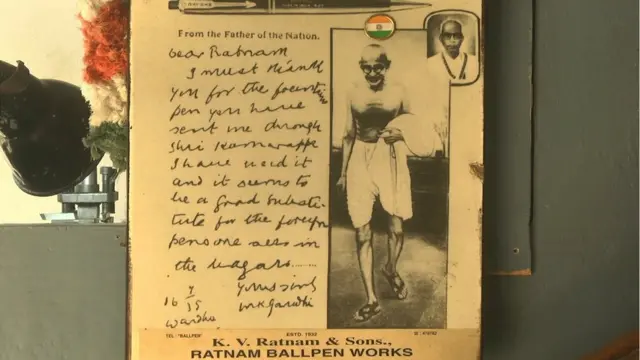 From the Father of the Nation.
Dear Ratnam
I must thank
you for the fountain
pen you have
sent me through
Shri Kumarappa
I have used it
and it seems to
be a good substi-
tute for the foreign
pens one sees in
the bazars......
yours sinly
16 7/35
mkgandhi
wardha
TEL: "BALLPEN" ESTD. 1932
K. V. Ratnam & Sons.,
RATNAM BALLPEN WORKS